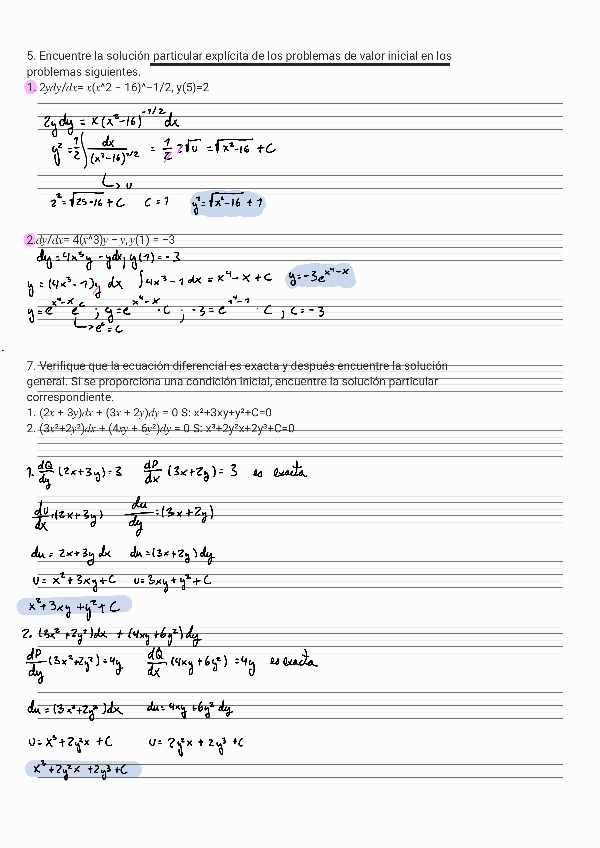 5. Encuentre la solución particular explícita de los problemas de valor inicial en los
problemas siguientes.
1. 2ydy/dx= x(x^2 − 16)^−1/2, y(5)=2
2y dy = x(x²-16)^-1/2 dx
y² = 1/2 ∫ dx/(x²-16)^1/2 = 1/2 2√u = √x²-16 + C
↳ u
2² = √25-16 + C C = 1 y² = √x²-16 + 1
2.dy/dx= 4(x^3)y − y, y(1) = −3
dy = 4x³y - ydx; y(1) = -3
y = (4x³-1)y dx ∫4x³-1 dx = x⁴-x + C y = -3e^x⁴-x
y = e^x⁴-x e^c ; y = e^x⁴-x · C ; -3 = e^x⁴-1 · C , C = -3
↳ e^c = C
7. Verifique que la ecuación diferencial es exacta y después encuentre la solución
general. Si se proporciona una condición inicial, encuentre la solución particular
correspondiente.
1. (2x + 3y)dx + (3x + 2y)dy = 0 S: x²+3xy+y²+C=0
2. (3x²+2y²)dx + (4xy + 6y²)dy = 0 S: x³+2y²x+2y³+C=0
1. dQ/dy (2x+3y) = 3 dP/dx (3x+2y) = 3 es exacta
du/dx = (2x+3y) du/dy = (3x+2y)
du = 2x+3y dx du = (3x+2y) dy
u = x² + 3xy + C u = 3xy + y² + C
x² + 3xy + y² + C
2. (3x² + 2y²)dx + (4xy + 6y²)dy
dP/dy (3x²+2y²) = 4y dQ/dx (4xy + 6y²) = 4y es exacta
du = (3x²+2y²)dx du = 4xy + 6y² dy
u = x³ + 2y²x + C u = 2y²x + 2y³ + C
x³ + 2y²x + 2y³ + C